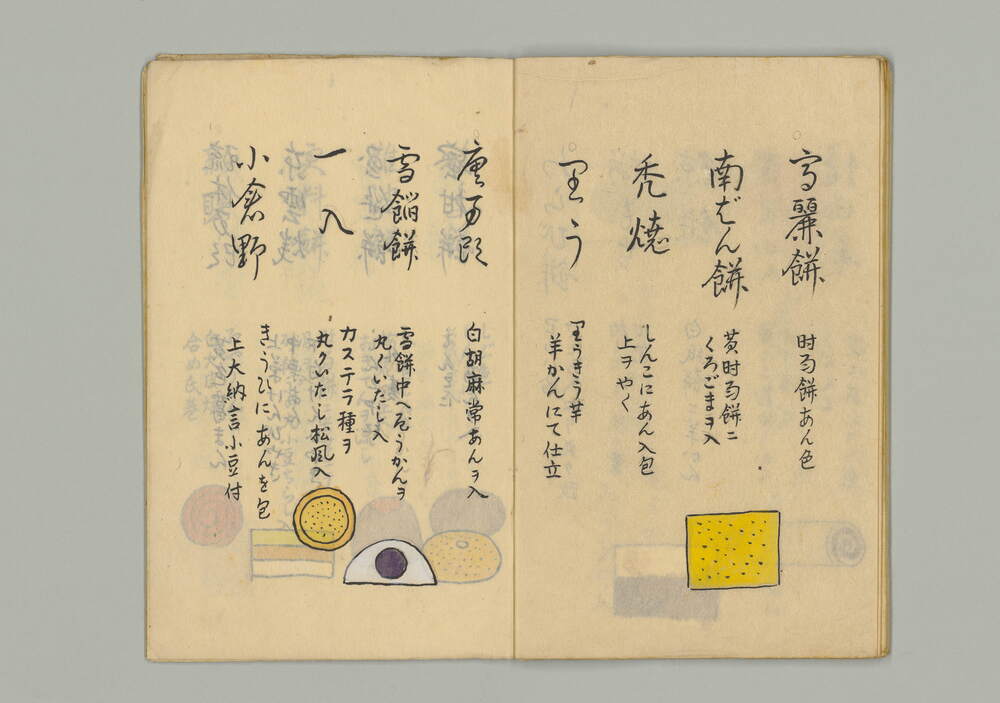 高麗餅
时雨餅あん色
南ばん餅
黄时雨餅ニ
くろごまヲ入
禿焼
しんこにあん入包
上ヲやく
里う
里うきう芋
羊かんにて仕立
唐万頭
白胡麻常あんヲ入
雪餡餅
雪餅中へやうかんヲ
丸くいたし入
一入
カステラ種ヲ
丸クいたし松風入
小倉野
きうひにあんを包
上大納言小豆付